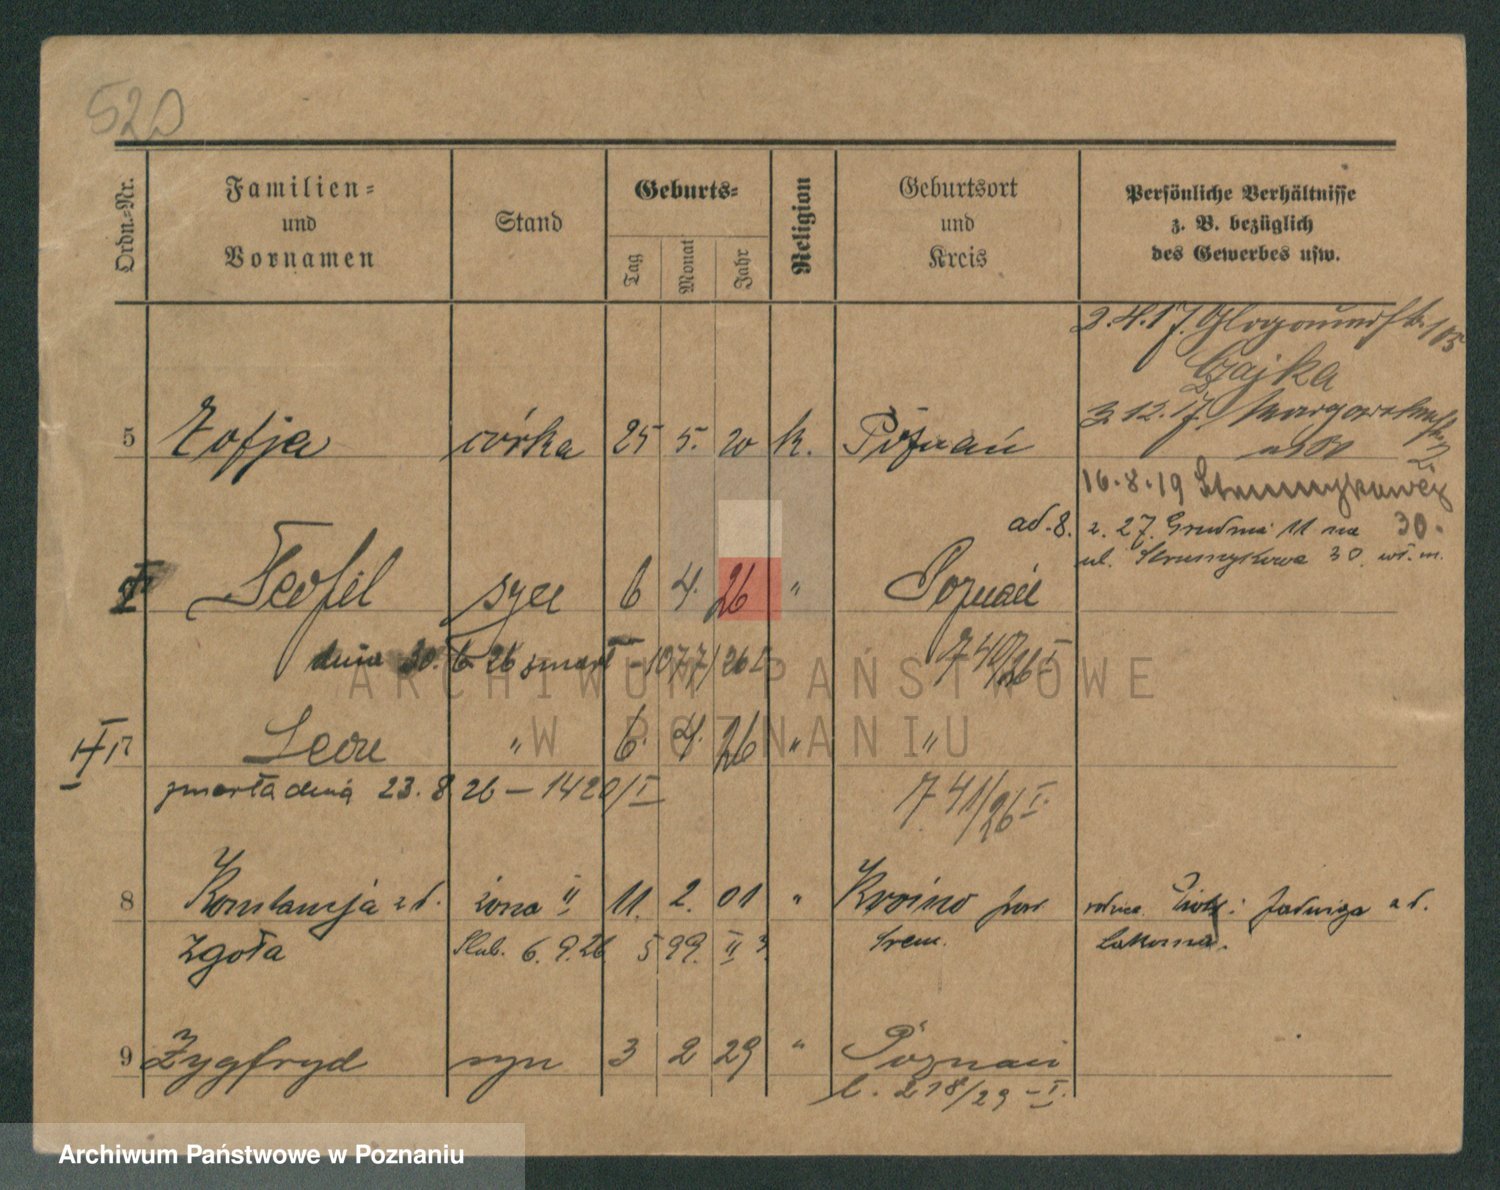 520
Ordn.-Nr.
Familien-
und
Vornamen
Stand
Geburts-
Tag
Monat
Jahr
Religion
Geburtsort
und
Kreis
Persönliche Verhältnisse
z. B. bezüglich
des Gewerbes usw.
2.4.17. 105
Czajka
5 Zofja córka 25 5. 20 k. Poznań
3 12. 17.
16.8.19
30.
ad. 8. z. 27. Grudnia 11 na
ul. Strumykowa 30. wł. m.
Teofil syn 6 4. 26 " Poznań
dnia 30. 6. 26 zmarł - 1077/26 I
740/26 I
7 Leon " 6. 4. 26 " "
zmarła dnia 23. 8 26 - 1420/I
741/26 I.
8 Konstancja z d. żona II 11. 2. 01 " Krosino pow. Piotr i Jadwiga z d.
Zgoła Ślub. 6. 9. 26. 599 II 3. Śrem.
9 Zygfryd syn 3 2 29 " Poznań
l. 218/29 - I.
ARCHIWUM PAŃSTWOWE
W POZNANIU
Archiwum Państwowe w Poznaniu